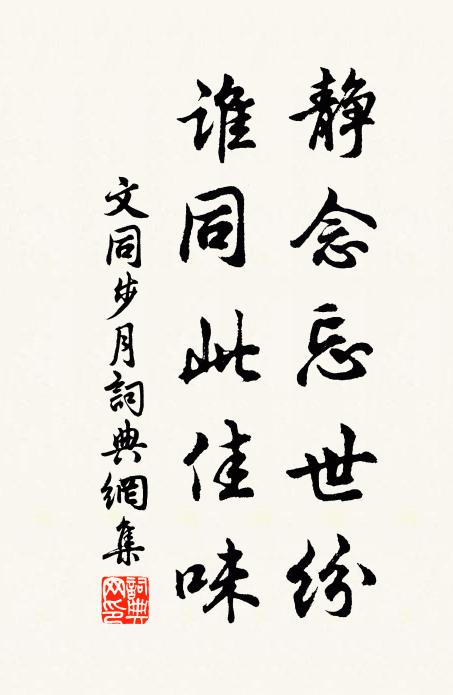 静念忘世纷
谁同此佳味
文同步月詞典網集
詞典网印